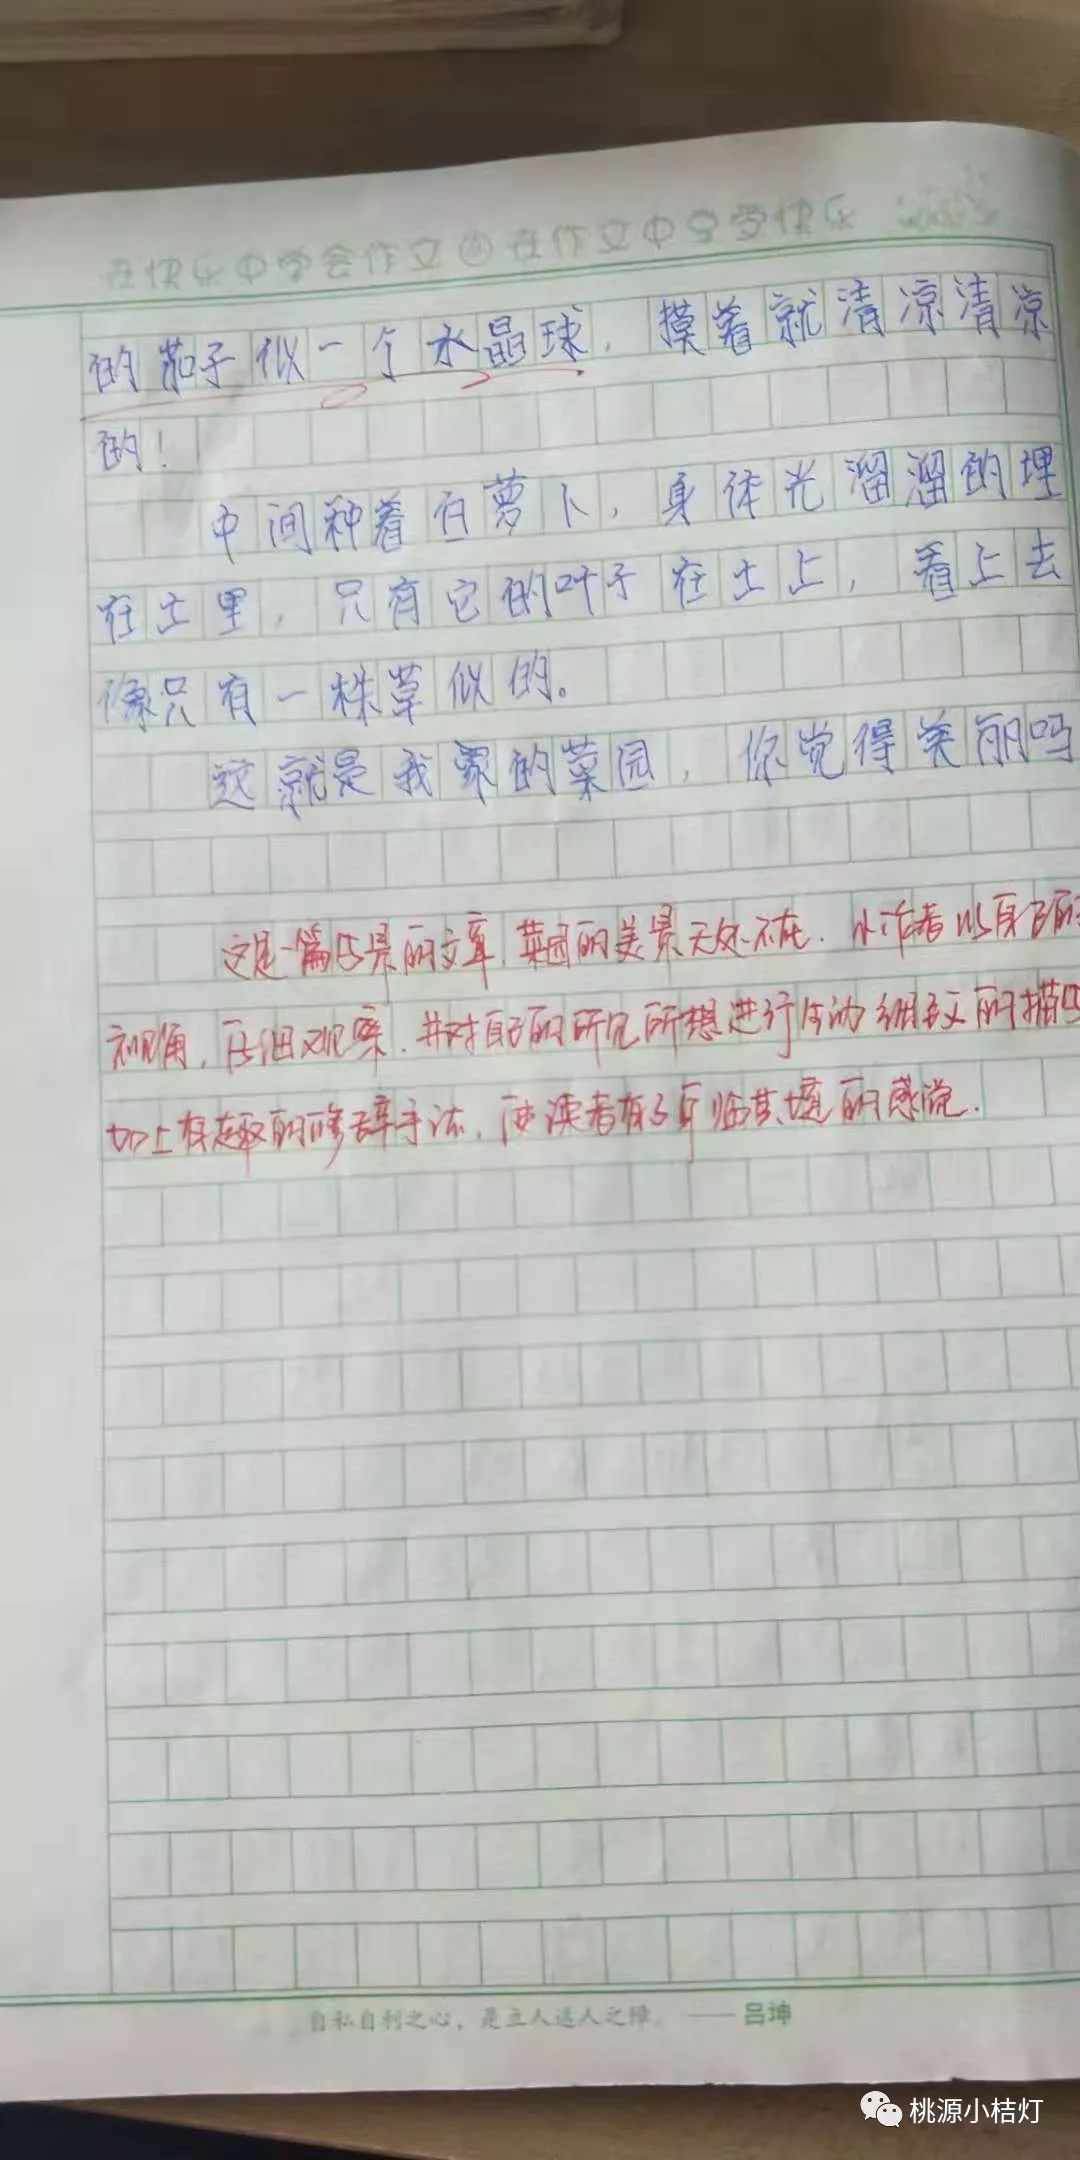 在快乐中学会作文 在作文中享受快乐
的茄子似一个水晶球，摸着就清凉清凉
的！
中间种着白萝卜，身体光溜溜的埋
在土里，只有它的叶子在土上，看上去
像只有一株草似的。
这就是我家的菜园，你觉得美丽吗
这是一篇写景的文章，菜园的美景无处不在．小作者以自己的
视角，仔细观察．并对自己的所见所想进行生动细致的描写
加上有趣的修辞手法，使读者有了身临其境的感觉．
自私自利之心，是立人达人之障。 —— 吕坤
桃源小桔灯